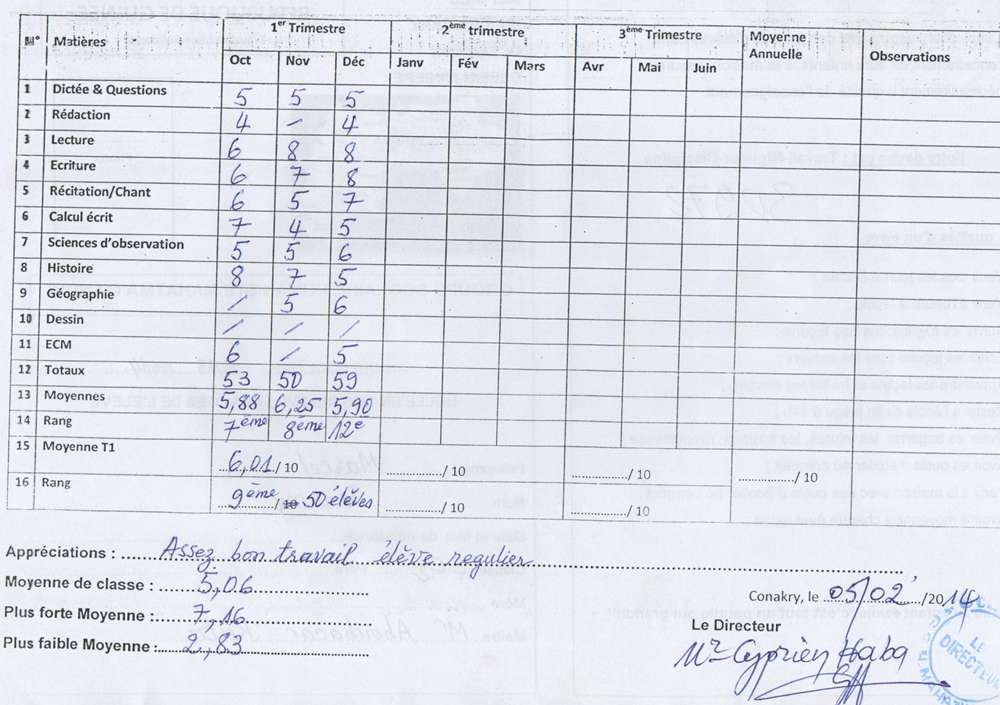 N° Matières 1er Trimestre 2ème trimestre 3ème Trimestre Moyenne Annuelle Observations
Oct Nov Déc Janv Fév Mars Avr Mai Juin
1 Dictée & Questions 5 5 5
2 Rédaction 4 / 4
3 Lecture 6 8 8
4 Ecriture 6 7 8
5 Récitation/Chant 6 5 7
6 Calcul écrit 7 4 5
7 Sciences d'observation 5 5 6
8 Histoire 8 7 5
9 Géographie / 5 6
10 Dessin / / /
11 ECM 6 / 5
12 Totaux 53 50 59
13 Moyennes 5,88 6,25 5,90
14 Rang 7ème 8ème 12e
15 Moyenne T1 6,01 / 10 ............/ 10 ............/ 10 ............/ 10
16 Rang 9ème / 10 50 élèves ............/ 10 ............/ 10
Appréciations : Assez bon travail élève regulier.
Moyenne de classe : 5,06
Conakry, le 05/02 /2014
Plus forte Moyenne : 7,16
Le Directeur
Plus faible Moyenne : 2,83
Mr Cyprien Haba
LE DIRECTEUR